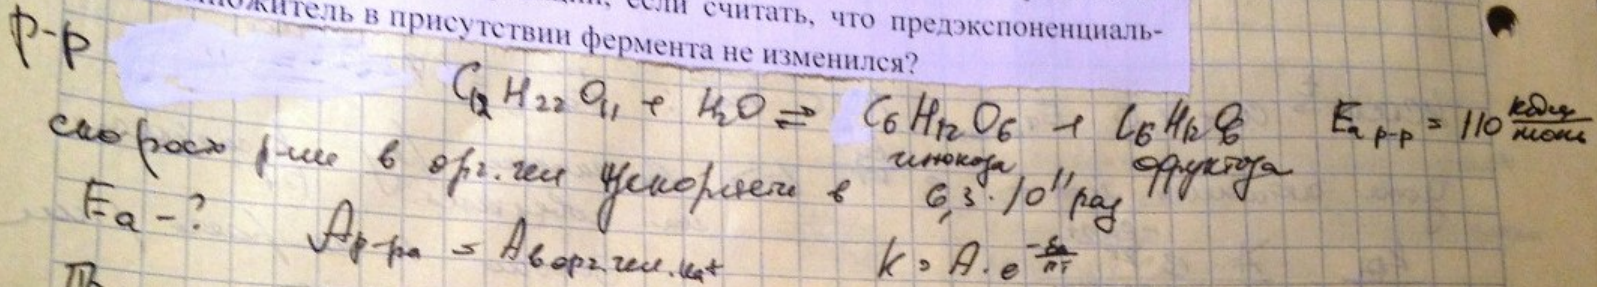 если считать, что предэкспоненциаль-
множитель в присутствии фермента не изменился?
р-р
C12H22O11 + H2O ⇌ C6H12O6 + C6H12O6 Ea р-р = 110 кДж/моль
глюкоза фруктоза
скорость р-ии в орг. чел ускоряется в 6,3·10^11 раз
Ea - ? Aр-ра = Aв орг. чел. k = A·e^(-Ea/RT)